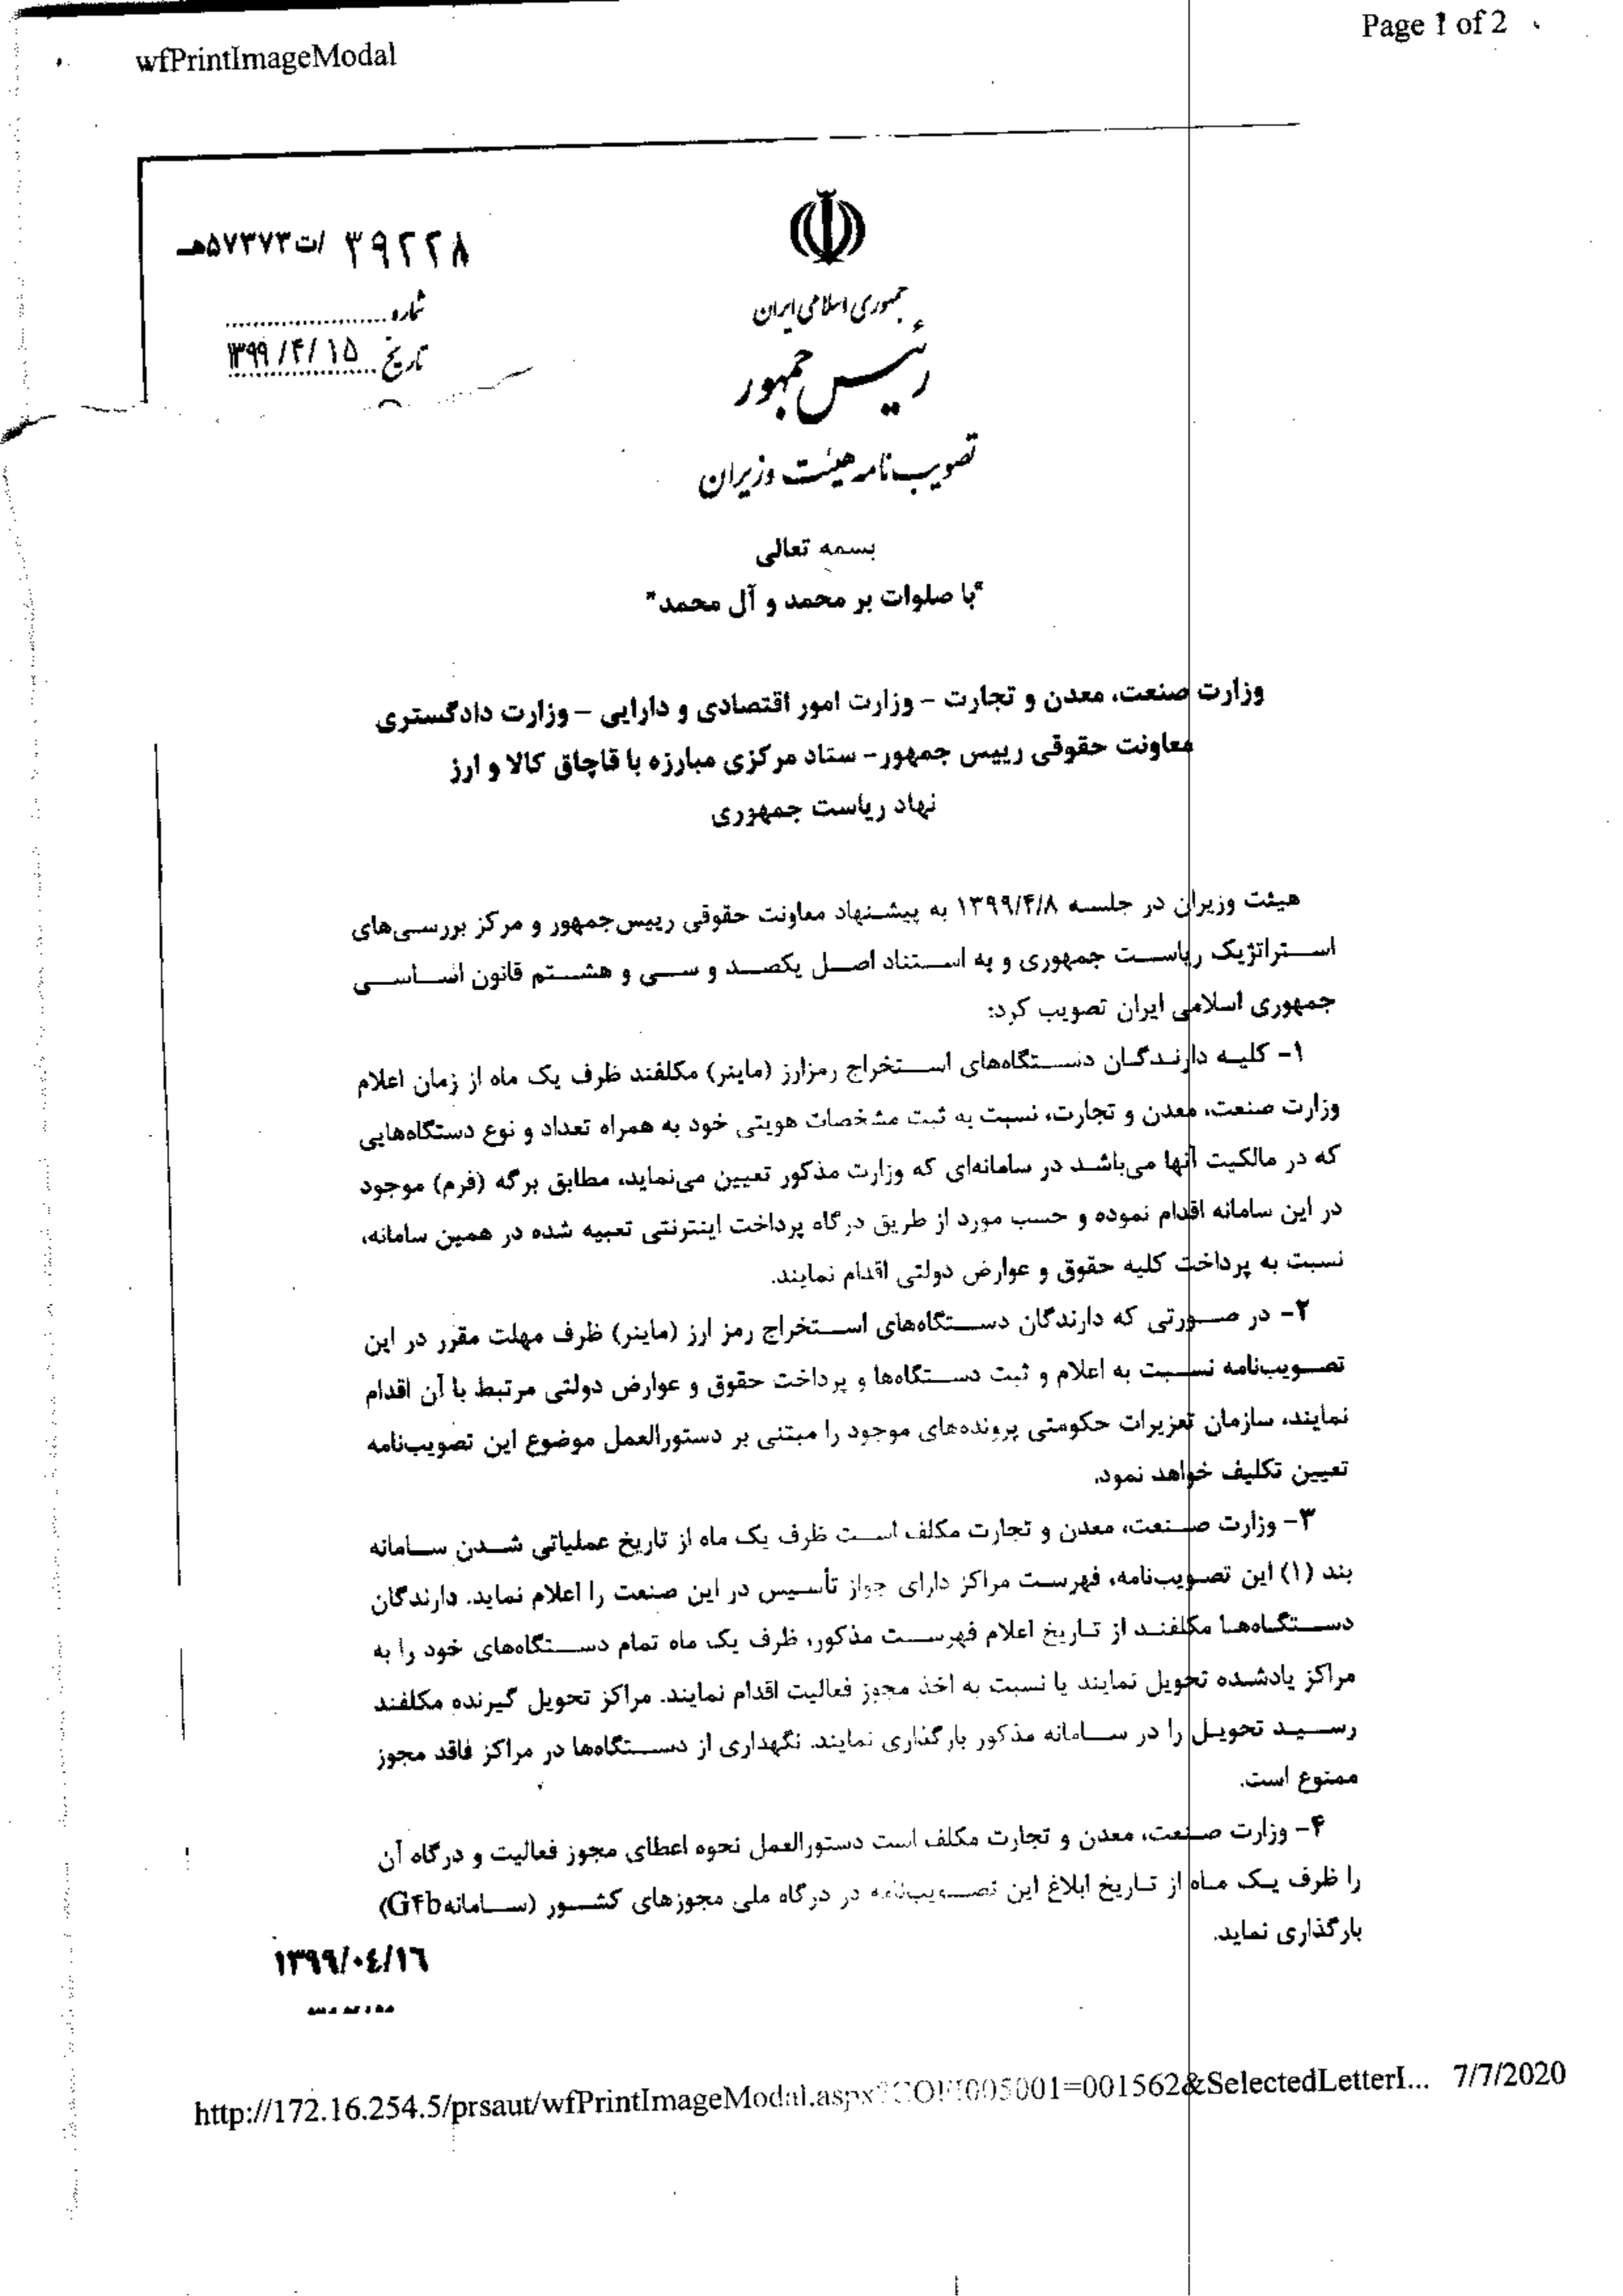 Page 1 of 2
wfPrintImageModal
۳۹۲۲۸ /ت۵۷۳۷۳هـ
شماره
تاریخ ۱۳۹۹/۴/۱۵
جمهوری اسلامی ایران
رئیس جمهور
تصویب‌نامه هیئت وزیران
بسمه تعالی
"با صلوات بر محمد و آل محمد"
وزارت صنعت، معدن و تجارت – وزارت امور اقتصادی و دارایی – وزارت دادگستری
معاونت حقوقی رییس جمهور – ستاد مرکزی مبارزه با قاچاق کالا و ارز
نهاد ریاست جمهوری
هیئت وزیران در جلسه ۱۳۹۹/۴/۸ به پیشنهاد معاونت حقوقی رییس‌جمهور و مرکز بررسی‌های
استراتژیک ریاست جمهوری و به استناد اصل یکصد و سی و هشتم قانون اساسی
جمهوری اسلامی ایران تصویب کرد:
۱– کلیه دارندگان دستگاه‌های استخراج رمزارز (ماینر) مکلفند ظرف یک ماه از زمان اعلام
وزارت صنعت، معدن و تجارت، نسبت به ثبت مشخصات هویتی خود به همراه تعداد و نوع دستگاه‌هایی
که در مالکیت آنها می‌باشد در سامانه‌ای که وزارت مذکور تعیین می‌نماید، مطابق برگه (فرم) موجود
در این سامانه اقدام نموده و حسب مورد از طریق درگاه پرداخت اینترنتی تعبیه شده در همین سامانه،
نسبت به پرداخت کلیه حقوق و عوارض دولتی اقدام نمایند.
۲– در صورتی که دارندگان دستگاه‌های استخراج رمز ارز (ماینر) ظرف مهلت مقرر در این
تصویب‌نامه نسبت به اعلام و ثبت دستگاه‌ها و پرداخت حقوق و عوارض دولتی مرتبط با آن اقدام
نمایند، سازمان تعزیرات حکومتی پرونده‌های موجود را مبتنی بر دستورالعمل موضوع این تصویب‌نامه
تعیین تکلیف خواهد نمود.
۳– وزارت صنعت، معدن و تجارت مکلف است ظرف یک ماه از تاریخ عملیاتی شدن سامانه
بند (۱) این تصویب‌نامه، فهرست مراکز دارای جواز تأسیس در این صنعت را اعلام نماید. دارندگان
دستگاه‌ها مکلفند از تاریخ اعلام فهرست مذکور، ظرف یک ماه تمام دستگاه‌های خود را به
مراکز یادشده تحویل نمایند یا نسبت به اخذ مجوز فعالیت اقدام نمایند. مراکز تحویل گیرنده مکلفند
رسید تحویل را در سامانه مذکور بارگذاری نمایند. نگهداری از دستگاه‌ها در مراکز فاقد مجوز
ممنوع است.
۴– وزارت صنعت، معدن و تجارت مکلف است دستورالعمل نحوه اعطای مجوز فعالیت و درگاه آن
را ظرف یک ماه از تاریخ ابلاغ این تصویب‌نامه در درگاه ملی مجوزهای کشور (سامانه G۴b)
بارگذاری نماید.
۱۳۹۹/۰۴/۱۶
http://172.16.254.5/prsaut/wfPrintImageModal.aspx?COFI005001=001562&SelectedLetterI... 7/7/2020